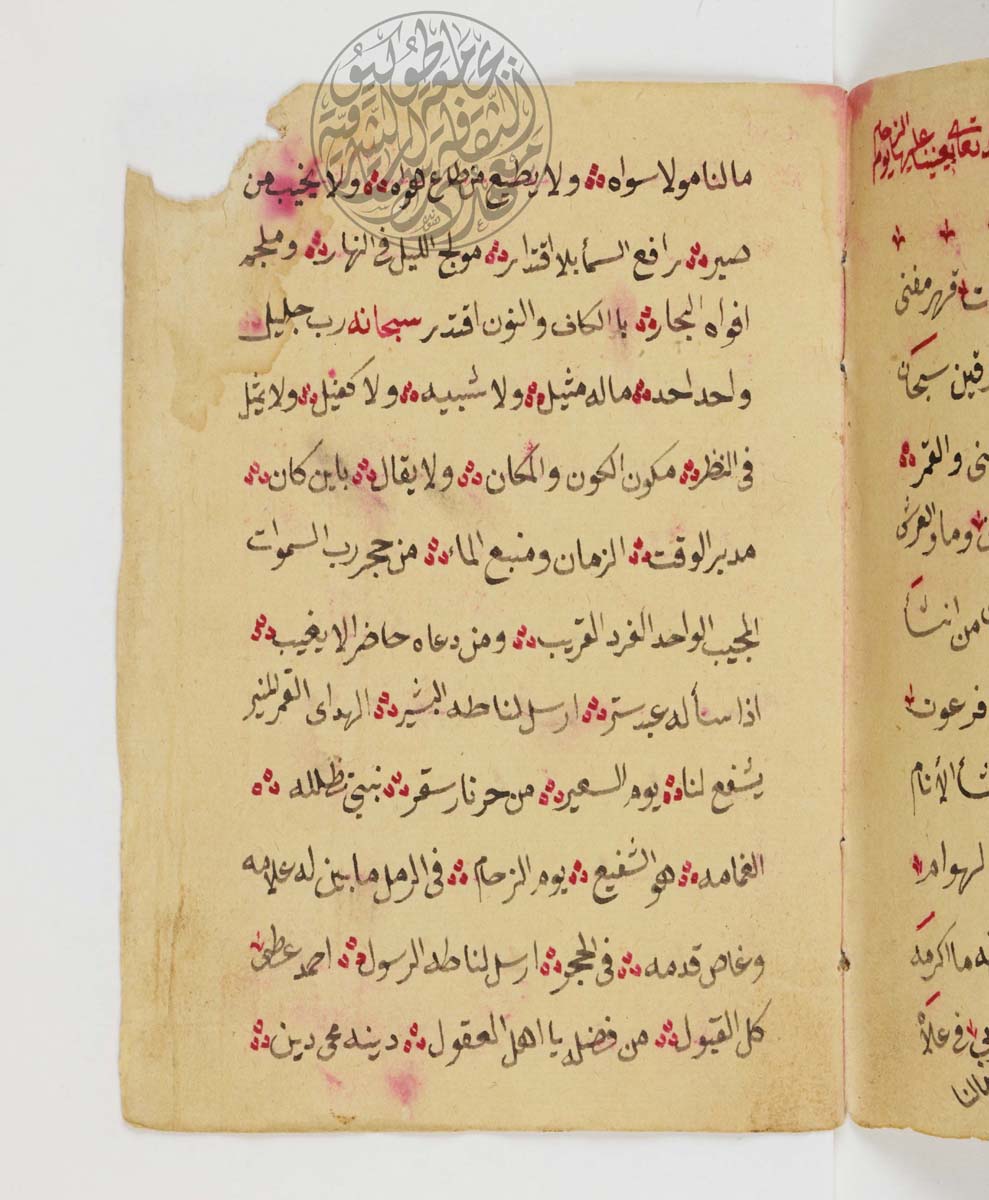 مالنا مولا سواه ولا يطيع من طاع هواه ولا يخيب من
صبر رافع السمأ بلا اقتدار مولج الليل في النهار وملجم
افواه البحار با الكاف والنون اقتدر سبحانه رب جليل
واحد احد ماله مثيل ولا شبيه ولا كفيل ولا يمثل
في النظر مكون الكون والمكان ولا يقال باين كان
مدبر الوقت الزمان ومنبع الماء من حجر رب السموات
المجيب الواحد الفرد القريب ومن دعاه حاضر الا يغيب
اذا سأله عبد ستر ارسل لنا طه البشير الهداى القمر المنير
يشفع لنا يوم السعير من حر نار سقر نبتي تظلله
الغمامه هو الشفيع يوم الزحام في الرمل ما بين له علامه
وغاص قدمه في الحجر ارسل لنا طه الرسول احمد عطى
كل القبول من فضله يا اهل العقول دينه محى دين
قهر مفنى
سبحان
والقمر
وما والعرش
من انشأ
فرعون
الأنام
الهوام
ما اكرمه
في علاه
مالنا